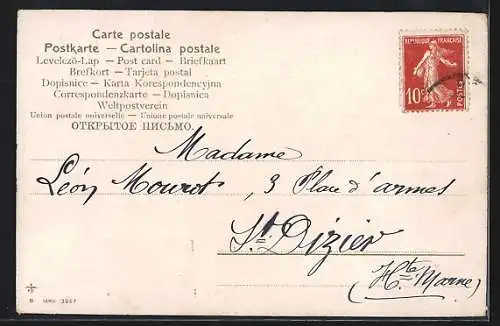 Carte postale
Postkarte — Cartolina postale
Levelező-Lap — Post card — Briefkaart
Brefkort — Tarjeta postal
Dopisnice — Karta Korespondencyjna
Correspondenzkarte — Dopisnica
Weltpostverein
Union postale universelle — Unione postale universale
ОТКРЫТОЕ ПИСЬМО.
REPUBLIQUE FRANÇAISE
10c
POSTES
Madame
Léon Mourot, 3 Place d'armes
St. Dizier
(Hte Marne)